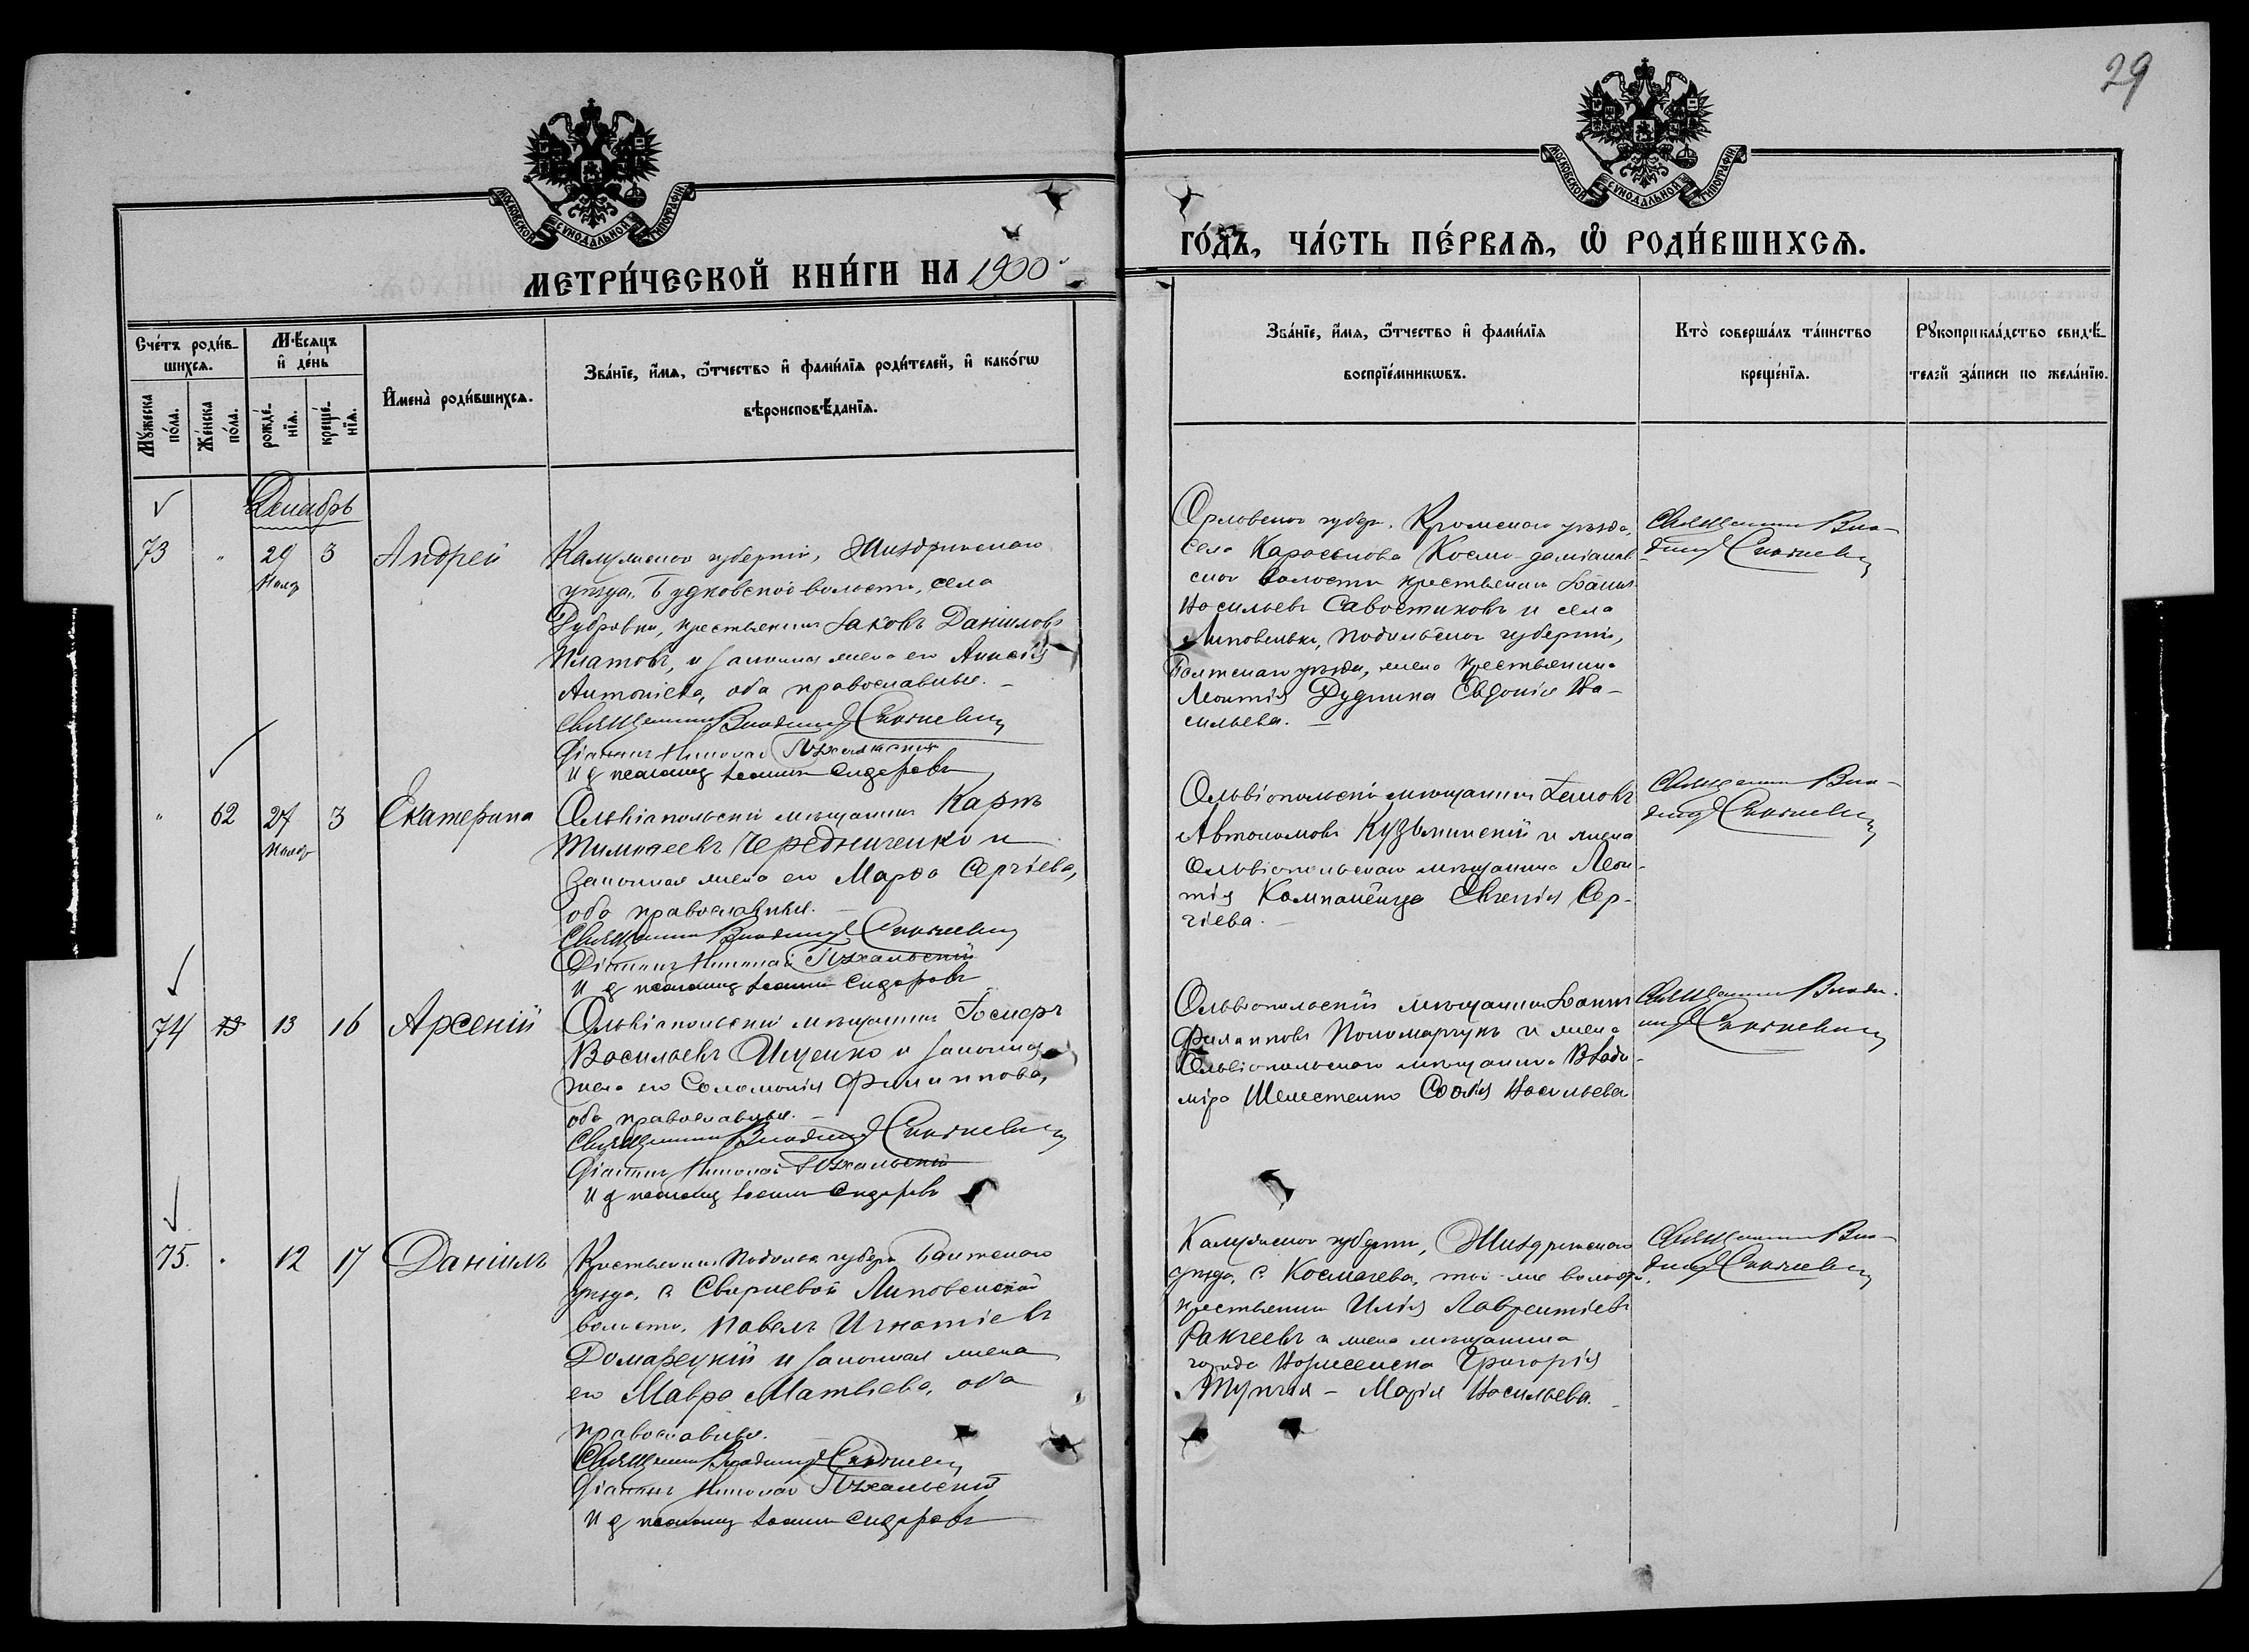 29
МОСКОВСКОЙ СУНОДАЛЬНОЙ ТИПОГРАФІИ
МОСКОВСКОЙ СУНОДАЛЬНОЙ ТИПОГРАФІИ
МЕТРИ́ЧЕСКОЙ КНИ́ГИ НА 1900
ГО́ДЪ, ЧА́СТЬ ПЕ́РВАѦ, Ѽ РОДИ́ВШИХСѦ.
Сче́тъ роди́в-
шихсѧ.
Мꙋ́жеска по́ла.
Же́нска по́ла.
Мѣ́сѧцъ
и҆ де́нь
рожде́-
нїѧ.
креще́-
нїѧ.
И҆мена̀ роди́вшихсѧ.
Зва́нїе, и҆́мѧ, ѻ҆́тчество и҆ фами́лїѧ роди́телей, и҆ како́гѡ
вѣроисповѣ́данїѧ.
Зва́нїе, и҆́мѧ, ѻ҆́тчество и҆ фами́лїѧ
воспрїе́мникѡвъ.
Кто̀ соверша́лъ та́инство
креще́нїѧ.
Рꙋкоприкла́дство свидѣ́-
телей за́писи по жела́нїю.
Декабрь
73 " 29 3 Андрей
Нояб
Калужской губерніи, Жиздринскаго
уѣзда, Будковской волости, села
Дубровки, крестьянинъ Іаковъ Даніиловъ
Платовъ, и законная жена его Анисія
Антоніева, оба православные.
Священникъ Владиміръ
Діаконъ Николай
И д псаломщ Іоаннъ Сидоровъ
Орловской губерн. Кромскаго уѣзда,
села Космо-даміанов-
ской волости крестьянинъ Іоаннъ
Васильевъ Савостиковъ и села
Липовеньки, Подольской губерніи,
Балтскаго уѣзда, жена крестьянина
Леонтія Дудника Евдокія Ва-
сильева.
Священникъ Вла-
диміръ
" 62 27 3 Екатерина
Нояб
Ольвіопольскій мѣщанинъ Карпъ
Тимофеевъ Чередниченко и
законная жена его Марѳа Сергіева,
оба православные.
Священникъ Владиміръ
Діаконъ Николай
И д псаломщ Іоаннъ Сидоровъ
Ольвіопольскій мѣщанинъ
Автономовъ Кузьминскій и жена
Ольвіопольскаго мѣщанина Леон-
тія Компанейца Евгенія Сер-
гіева.
Священникъ Вла-
диміръ
74 13 16 Арсеній
Ольвіопольскій мѣщанинъ
Васильевъ Ищенко и законная
жена его Соломонія Филиппова,
оба православные.
Священникъ Владиміръ
Діаконъ Николай
И д псаломщ Іоаннъ Сидоровъ
Ольвіопольскій мѣщанинъ Іоаннъ
Филипповъ Пономарчукъ и жена
Ольвіопольскаго мѣщанина Влади-
міра Шелестенко Софія Васильева
Священникъ Влади-
міръ
75. " 12 17 Даніилъ
Крестьянинъ Подольск губерн Балтскаго
уѣзда, с Липовенской
волости, Павелъ Игнатіевъ
Домарецкій и законная жена
его Мавра Матвіева, оба
православные.
Священникъ Владиміръ
Діаконъ Николай
И д псаломщ Іоаннъ Сидоровъ
Калужской губерніи, Жиздринскаго
уѣзда, с. Космачева, той-же волости,
крестьянинъ Илія Лаврентіевъ
Ракчеевъ и жена мѣщанина
города Григорія
Марія Васильева.
Священникъ Вла-
диміръ